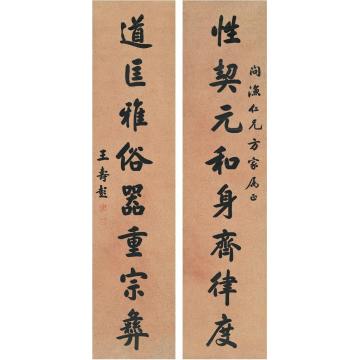 性契元和身齊律度
問漁仁兄方家属正
道匡雅俗器重宗彝
王壽彭